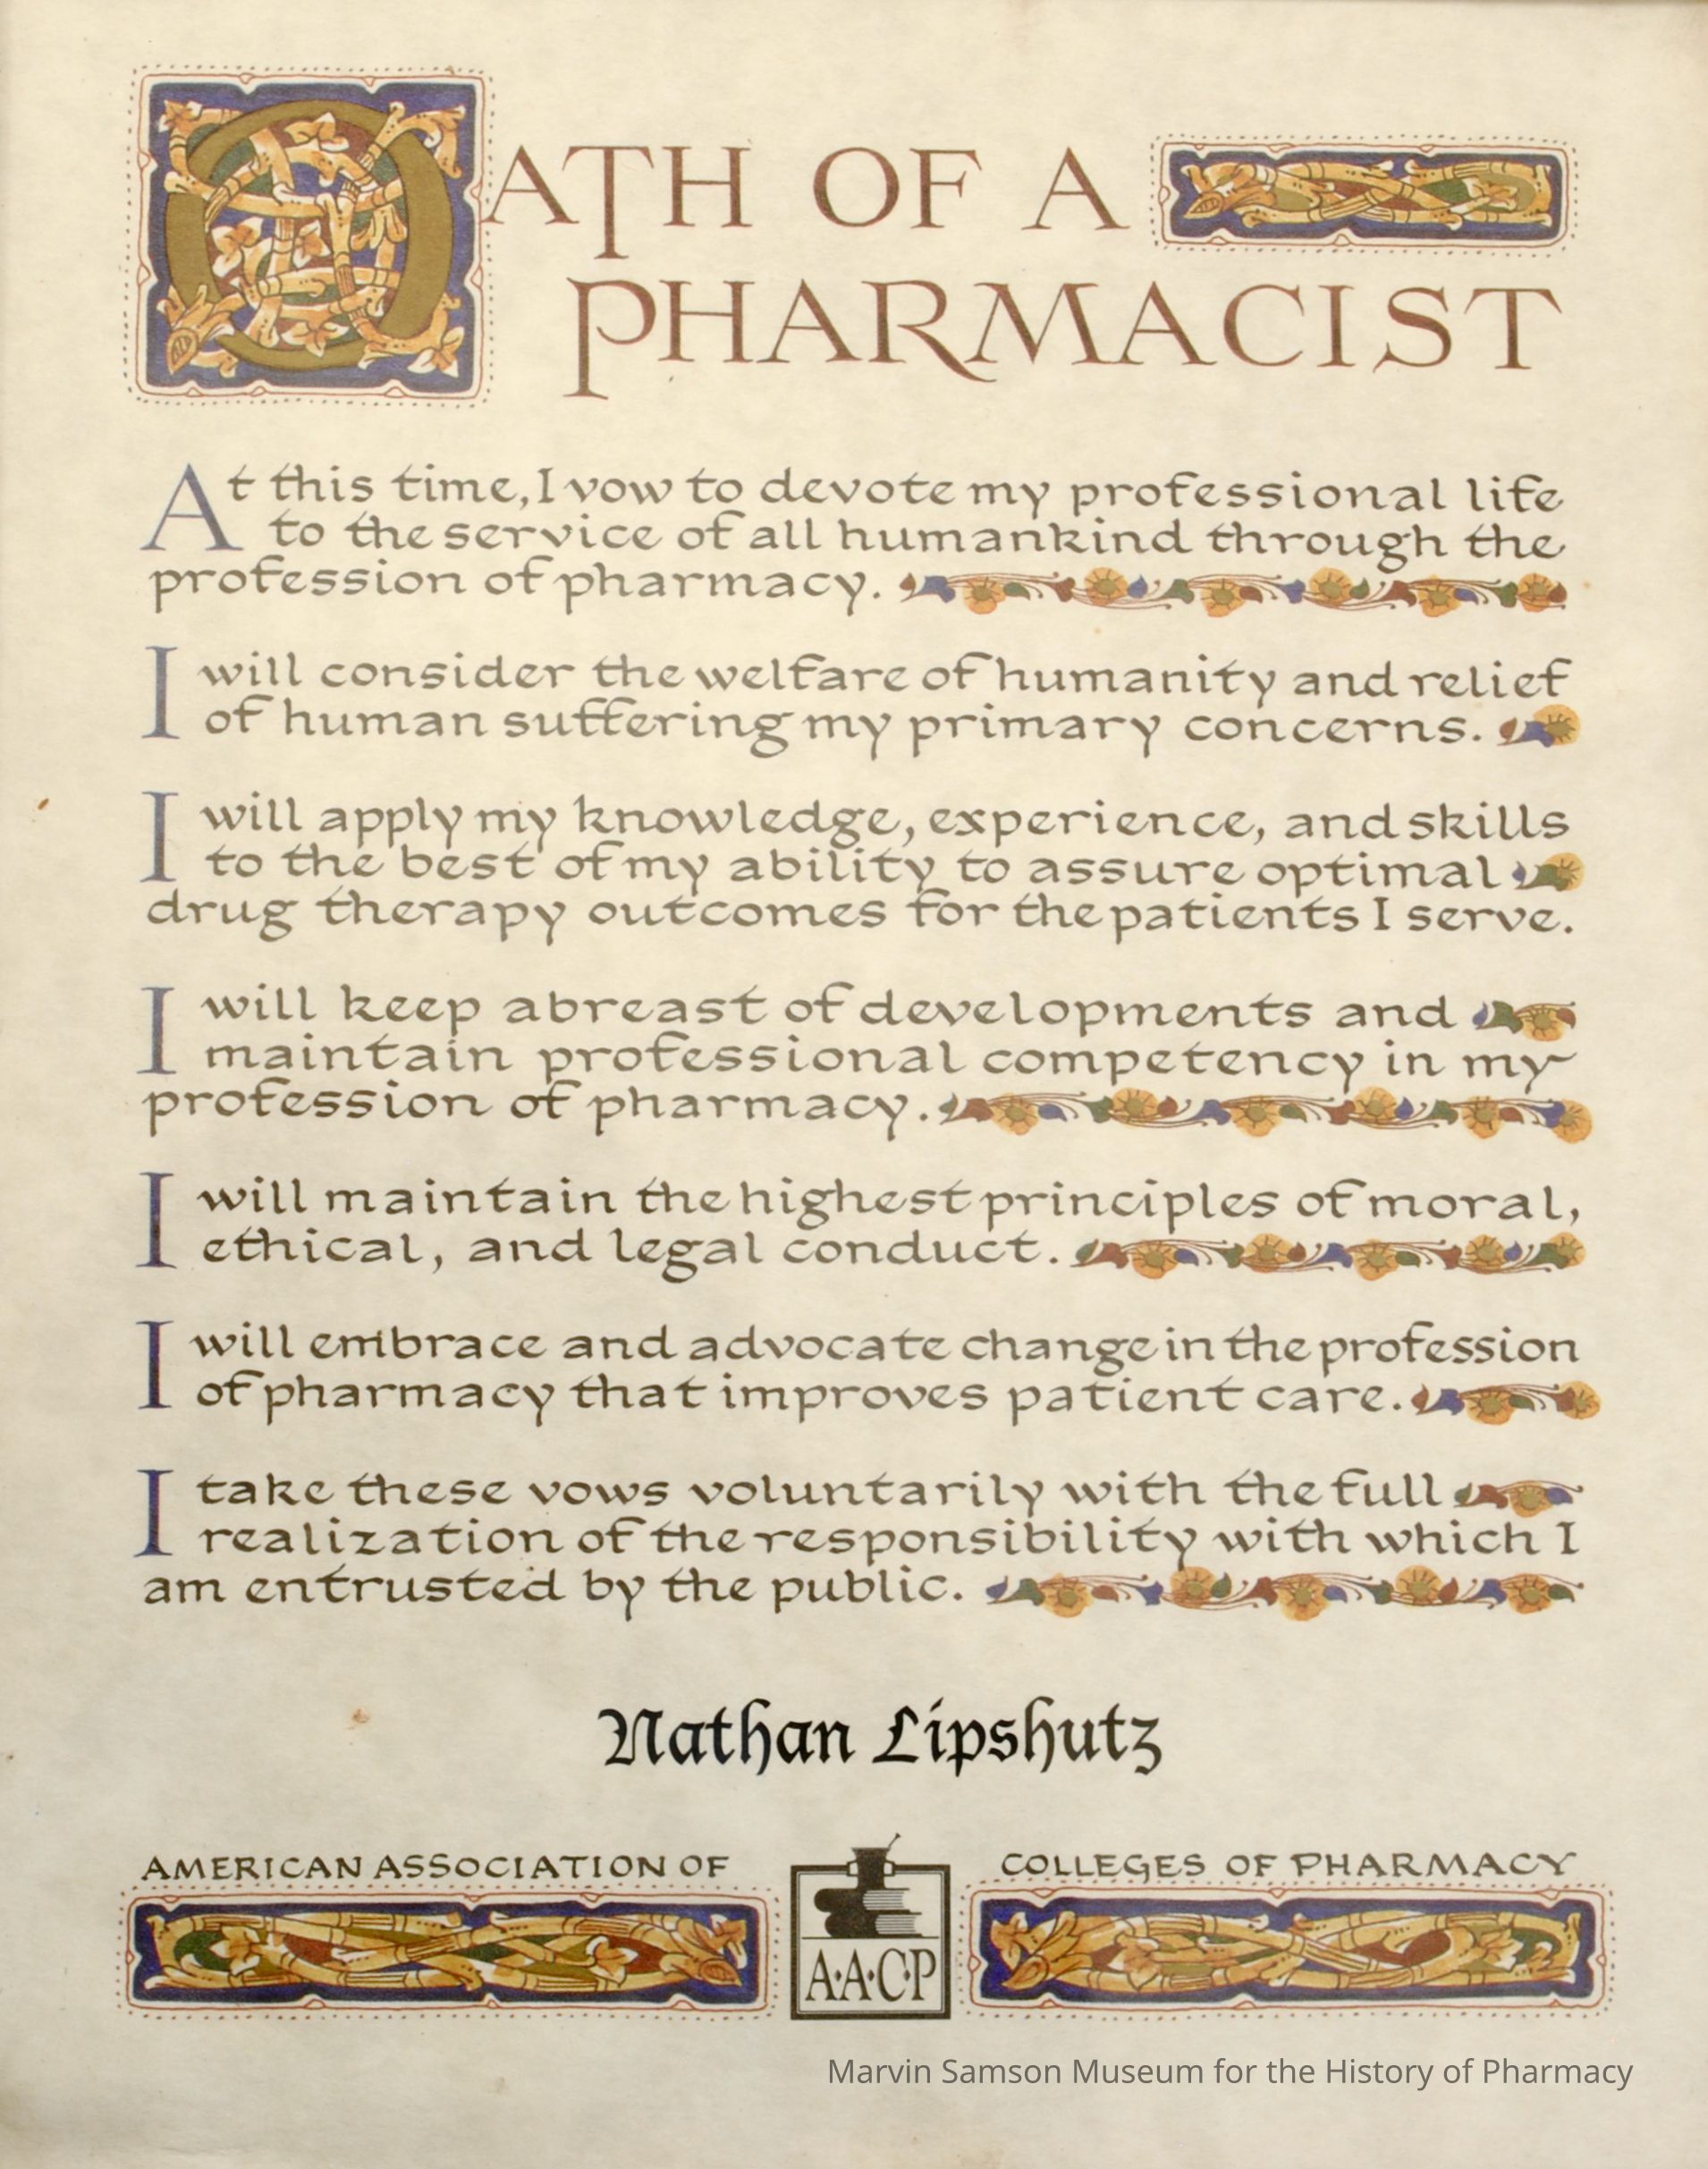 OATH OF A
PHARMACIST
At this time, I vow to devote my professional life
to the service of all humankind through the
profession of pharmacy.
I will consider the welfare of humanity and relief
of human suffering my primary concerns.
I will apply my knowledge, experience, and skills
to the best of my ability to assure optimal
drug therapy outcomes for the patients I serve.
I will keep abreast of developments and
maintain professional competency in my
profession of pharmacy.
I will maintain the highest principles of moral,
ethical, and legal conduct.
I will embrace and advocate change in the profession
of pharmacy that improves patient care.
I take these vows voluntarily with the full
realization of the responsibility with which I
am entrusted by the public.
Nathan Lipshutz
AMERICAN ASSOCIATION OF COLLEGES OF PHARMACY
A·A·C·P
Marvin Samson Museum for the History of Pharmacy